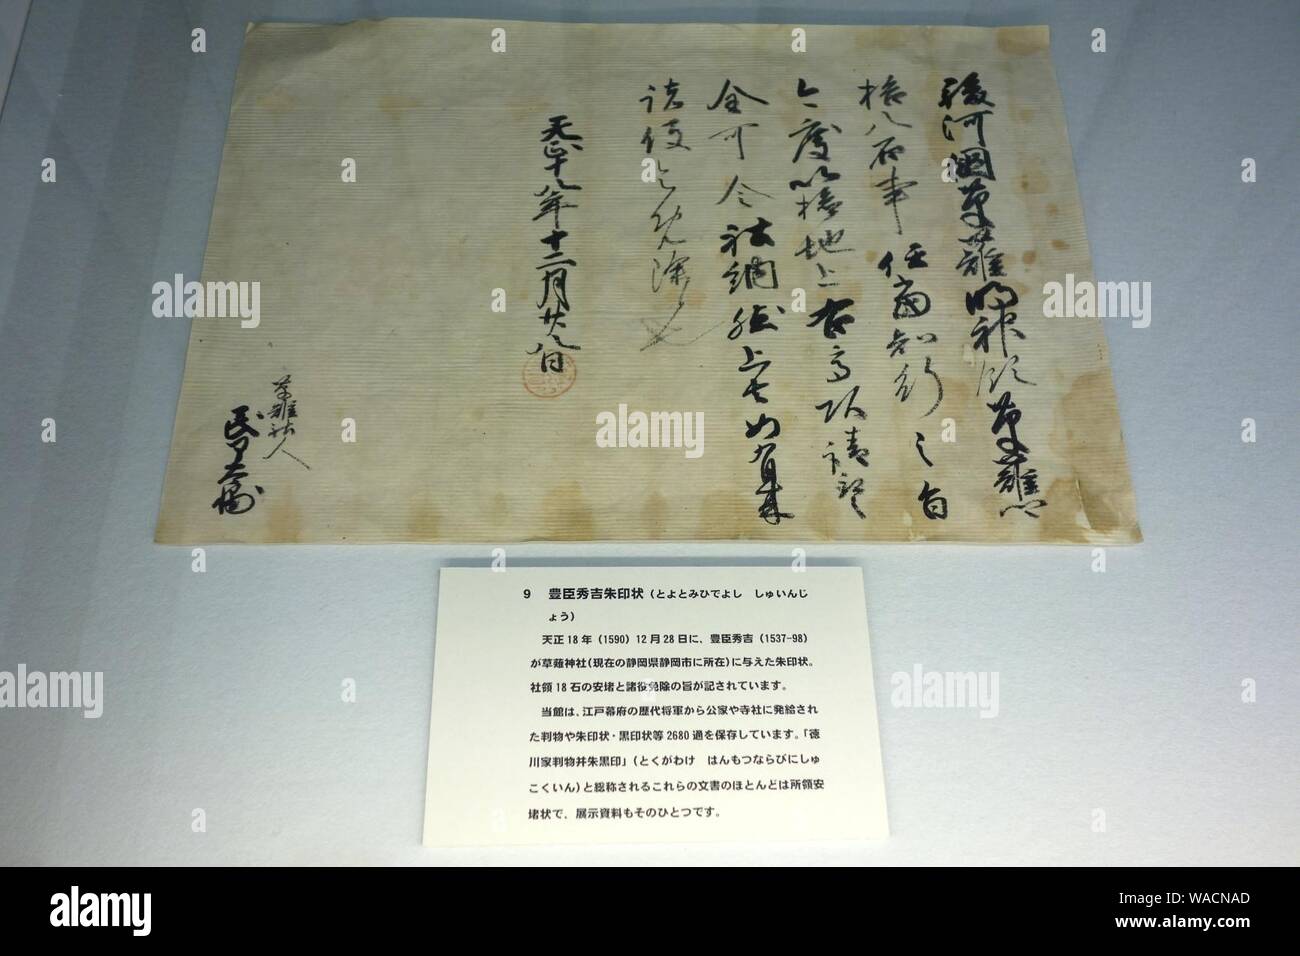 駿河国草薙明神領草薙郷
拾八石事任当知行之旨
今度以検地上
全可令社納
諸役令免除
天正十八年十二月廿八日
草薙社人
9 豊臣秀吉朱印状（とよとみひでよし しゅいんじ
ょう）
天正18年（1590）12月28日に、豊臣秀吉（1537-98）
が草薙神社（現在の静岡県静岡市に所在）に与えた朱印状。
社領18石の安堵と諸役免除の旨が記されています。
当館は、江戸幕府の歴代将軍から公家や寺社に発給され
た判物や朱印状・黒印状等2680通を保存しています。「徳
川家判物并朱黒印」（とくがわけ はんもつならびにしゅ
こくいん）と総称されるこれらの文書のほとんどは所領安
堵状で、展示資料もそのひとつです。
alamy
alamy
Image ID: WACNAD
www.alamy.com